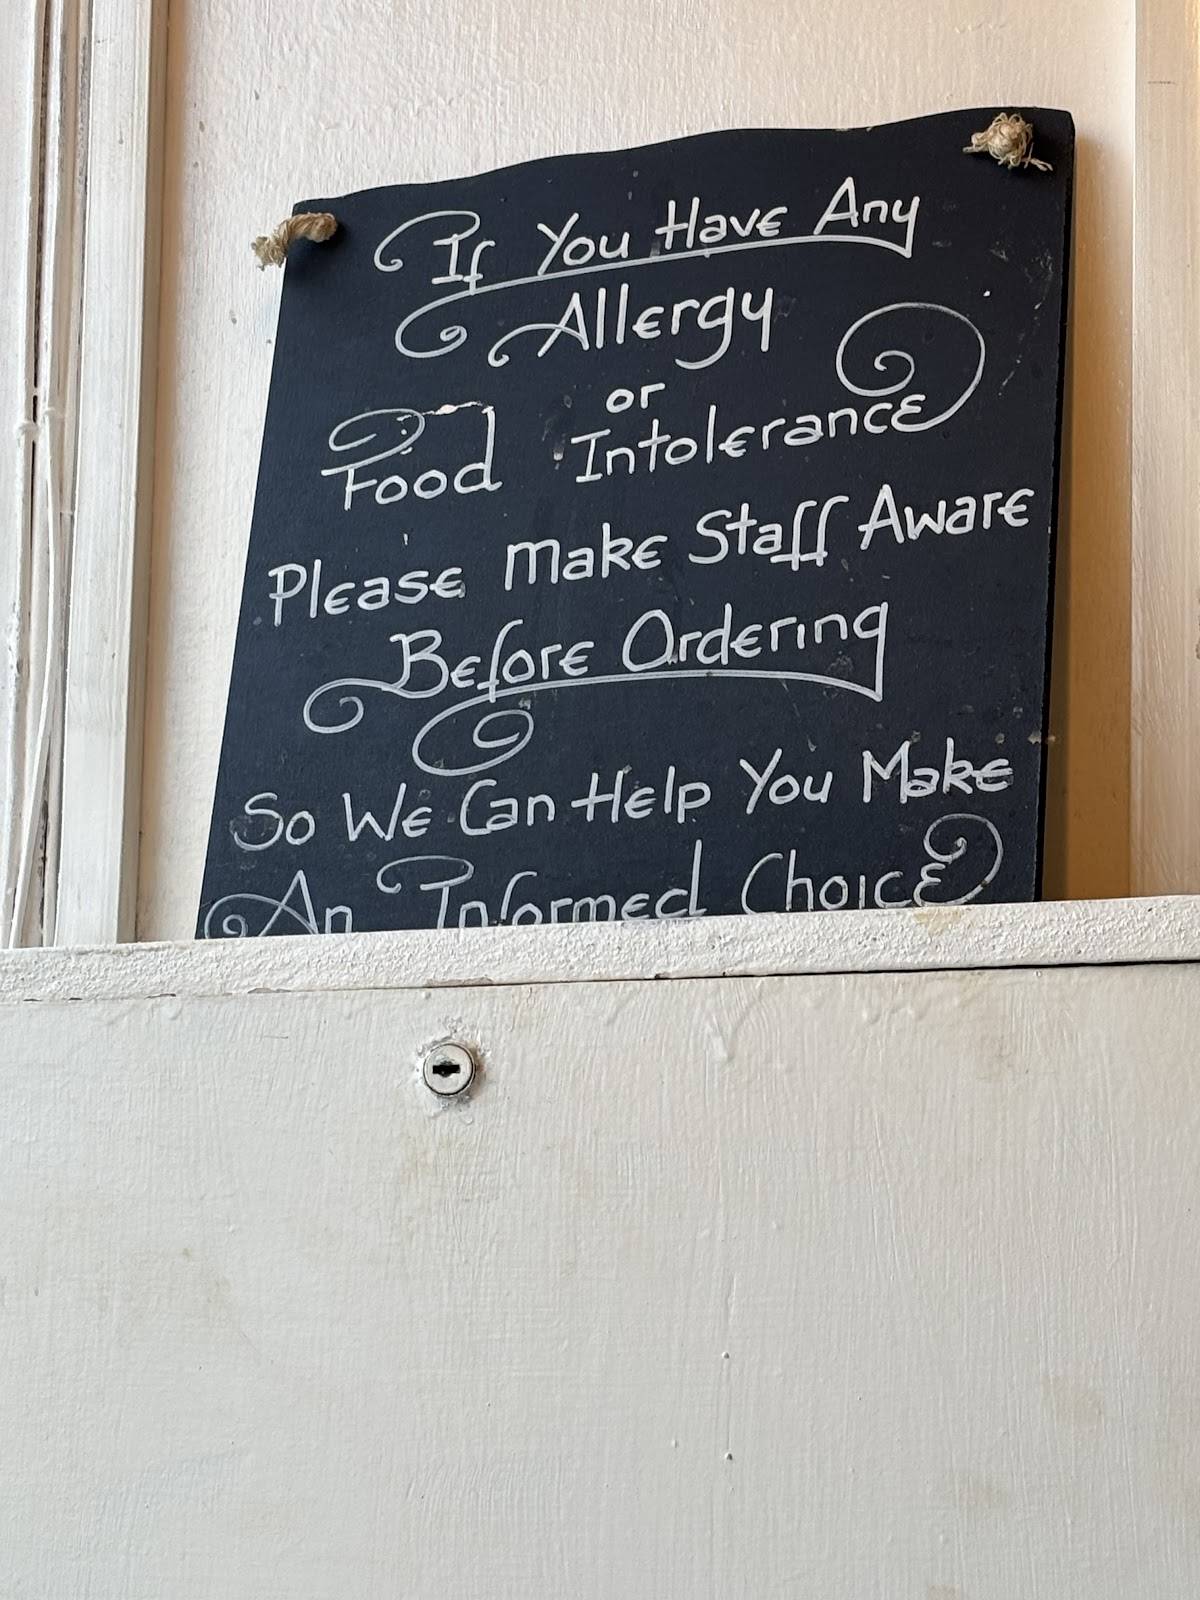 If You Have Any
Allergy
or
Food Intolerance
Please Make Staff Aware
Before Ordering
So We Can Help You Make
An Informed Choice